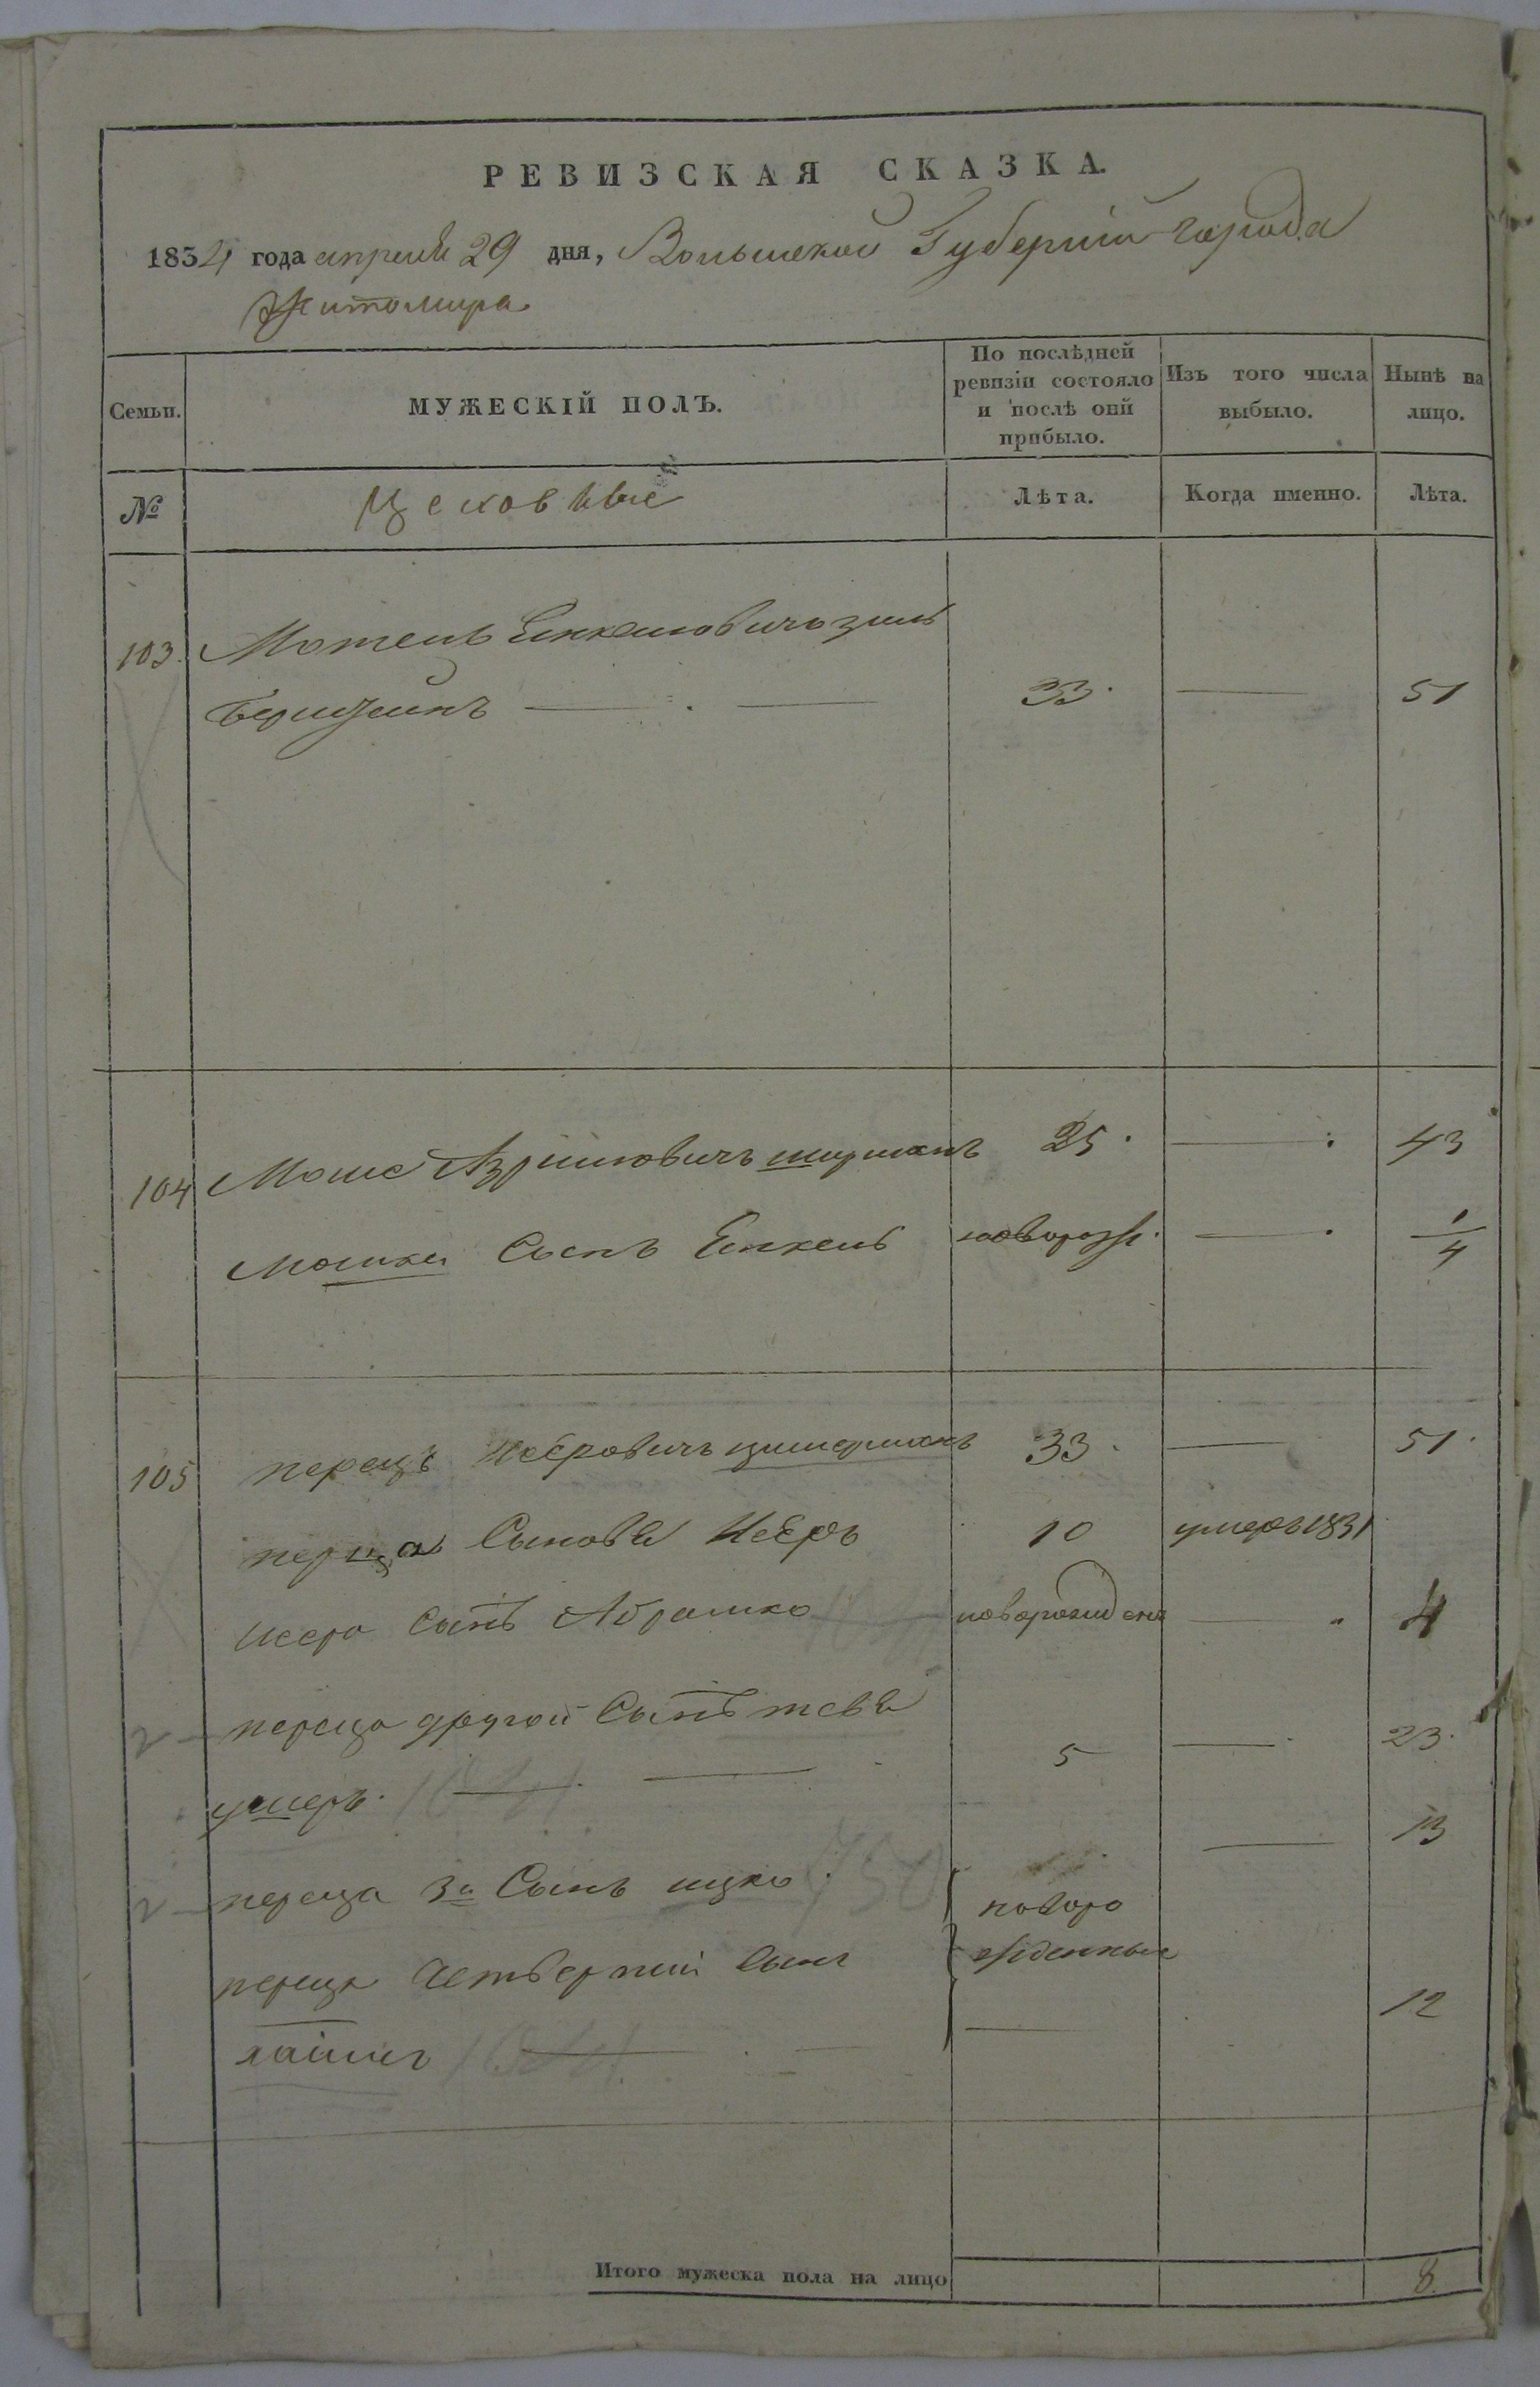 РЕВИЗСКАЯ СКАЗКА.
1834 года апреля 29 дня, Волынской Губернии города
Житомира
Семьи. МУЖЕСКІЙ ПОЛЪ. По послѣдней ревизіи состояло и послѣ оной прибыло. Изъ того числа выбыло. Нынѣ на лицо.
№ Цеховые Лѣта. Когда именно. Лѣта.
103. Мотель Енкелювичъ Зиль
берштейнъ 33. 51
104 Мошко Азрилювичъ шурманъ 25. 43
мошка Сынъ Енкель новорож. 1/4
105 перецъ Исеровичъ цимерманъ 33. 51.
перца Сыновъя Исеръ 10 умеръ 1831
исера Сынъ Абрамко новорожденъ 4
переца другой Сынъ
5 23.
переца 3й Сынъ ицко. новоро 13
переца Четвертый Сынъ жденные
хаимъ 12
Итого мужеска пола на лицо 8.